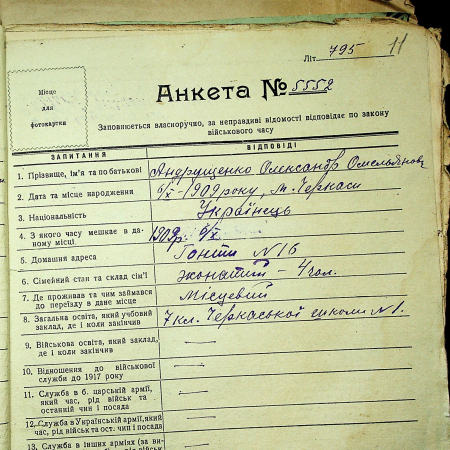 Літ. 795
11
Місце
для
фотокартки
Анкета № 5552
Заповнюється власноручно, за неправдиві відомості відповідає по закону
військового часу
ЗАПИТАННЯ ВІДПОВІДІ
1. Прізвище, ім'я та по батькові Андрущенко Олександр Омельянов
2. Дата та місце народження 6/X-1909 року, м. Черкаси
3. Національність Українець
4. З якого часу мешкає в да-
ному місці. 1909р. 6/X
5. Домашня адреса Гонти N 16
6. Сімейний стан та склад сім'ї жонатий - 4 чол.
7. Де проживав та чим займався
до переїзду в дане місце Місцевий
8. Загальна освіта, який учбовий
заклад, де і коли закінчив 7 кл. Черкаської школи N 1.
9. Військова освіта, який заклад,
де і коли закінчив —
10. Відношення до військової
служби до 1917 року —
11. Служба в б. царській армії,
який час, рід військ та
останній чин і посада —
12. Служба в Українській армії, який
час, рід військ та ост. чин і посада —
13. Служба в інших арміях (за ви-